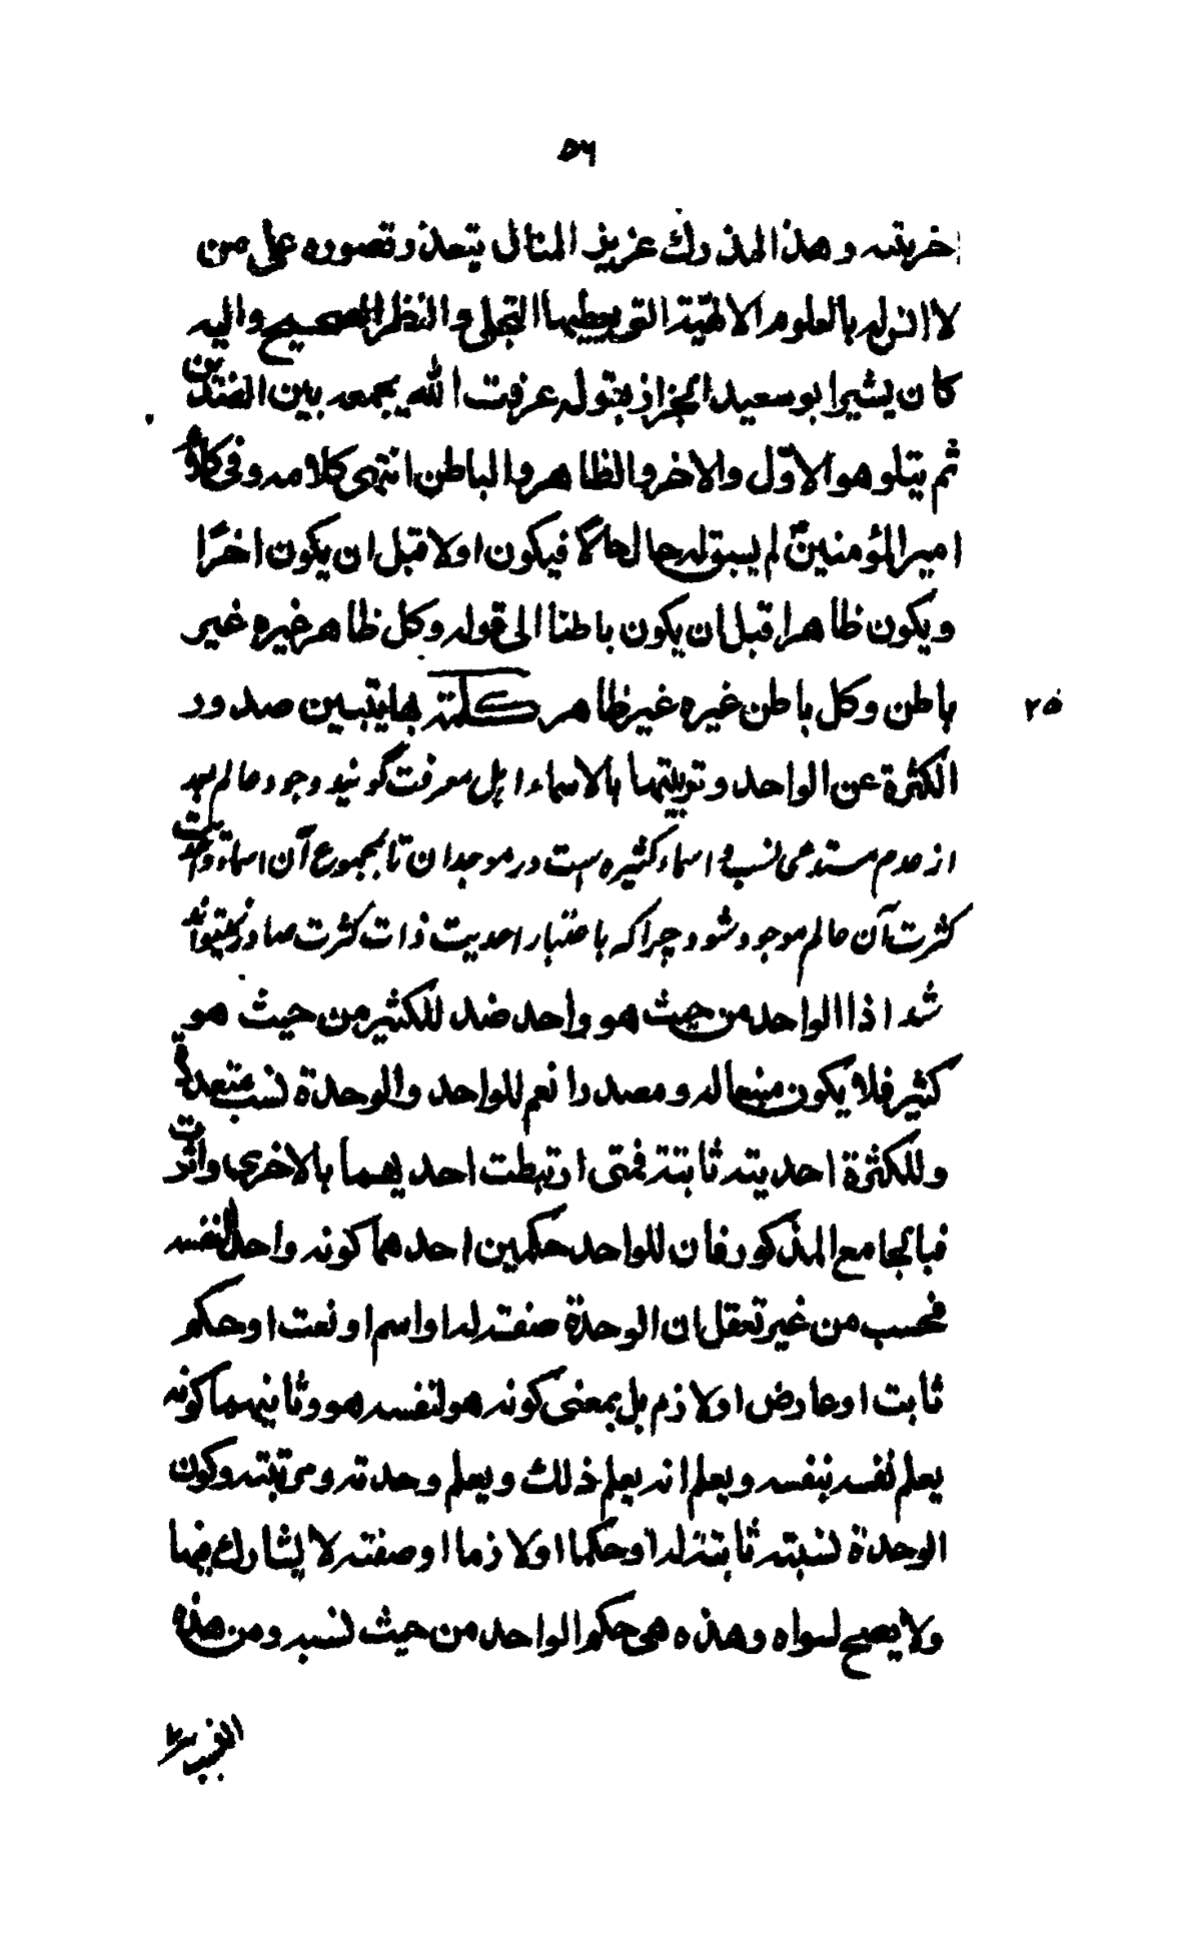 ٥٦
اخريته وهذا المدرك عزيز المنال يتعذر تصوره على من
لا انس له بالعلوم الالهية التي يعطيها التجلي والنظر الصحيح واليه
كان يشير ابو سعيد الخراز بقوله عرفت الله بجمعه بين الضدين
ثم يتلو هو الاوّل والاخر والظاهر والباطن انتهى كلامه وفى كلام
امير المؤمنين لم يسبق له حال حالا فيكون اولا قبل ان يكون اخرًا
ويكون ظاهرا قبل ان يكون باطنا الى قوله وكل ظاهر غيره غير
باطن وكل باطن غيره غير ظاهر كلمة بها يتبين صدور
٢٥
الكثرة عن الواحد وتربيتها بالاسماء اہل معرفت گویند وجود عالم بعد
از عدم مستدعی نسب و اسماء کثیره است در موجد آن تا بمجموع آن اسماء وحدت
کثرت آن عالم موجود شود چرا که باعتبار احدیت ذات کثرت صادر نمیتواند
شد اذ الواحد من حيث هو واحد ضد للكثير من حيث هو
كثير فلا يكون منبعا له ومصدرا نعم للواحد والوحدة نسب متعددة
وللكثرة احدية ثابتة فمتى ارتبطت احديهما بالاخرى واثرت
فبالجامع المذكور فان للواحد حكمين احدهما كونه واحدا لنفسه
فحسب من غير تعقل ان الوحدة صفة له او اسم او نعت او حكم
ثابت او عارض او لازم بل بمعنى كونه هو لنفسه هو وثانيهما كونه
يعلم نفسه بنفسه ويعلم انه يعلم ذلك ويعلم وحدته ومرتبته وكون
الوحدة نسبة ثابتة له او حكما او لازما او صفة لا يشارك فيها
ولا يصح لسواه وهذه هى حكم الواحد من حيث نسبه ومن هذه